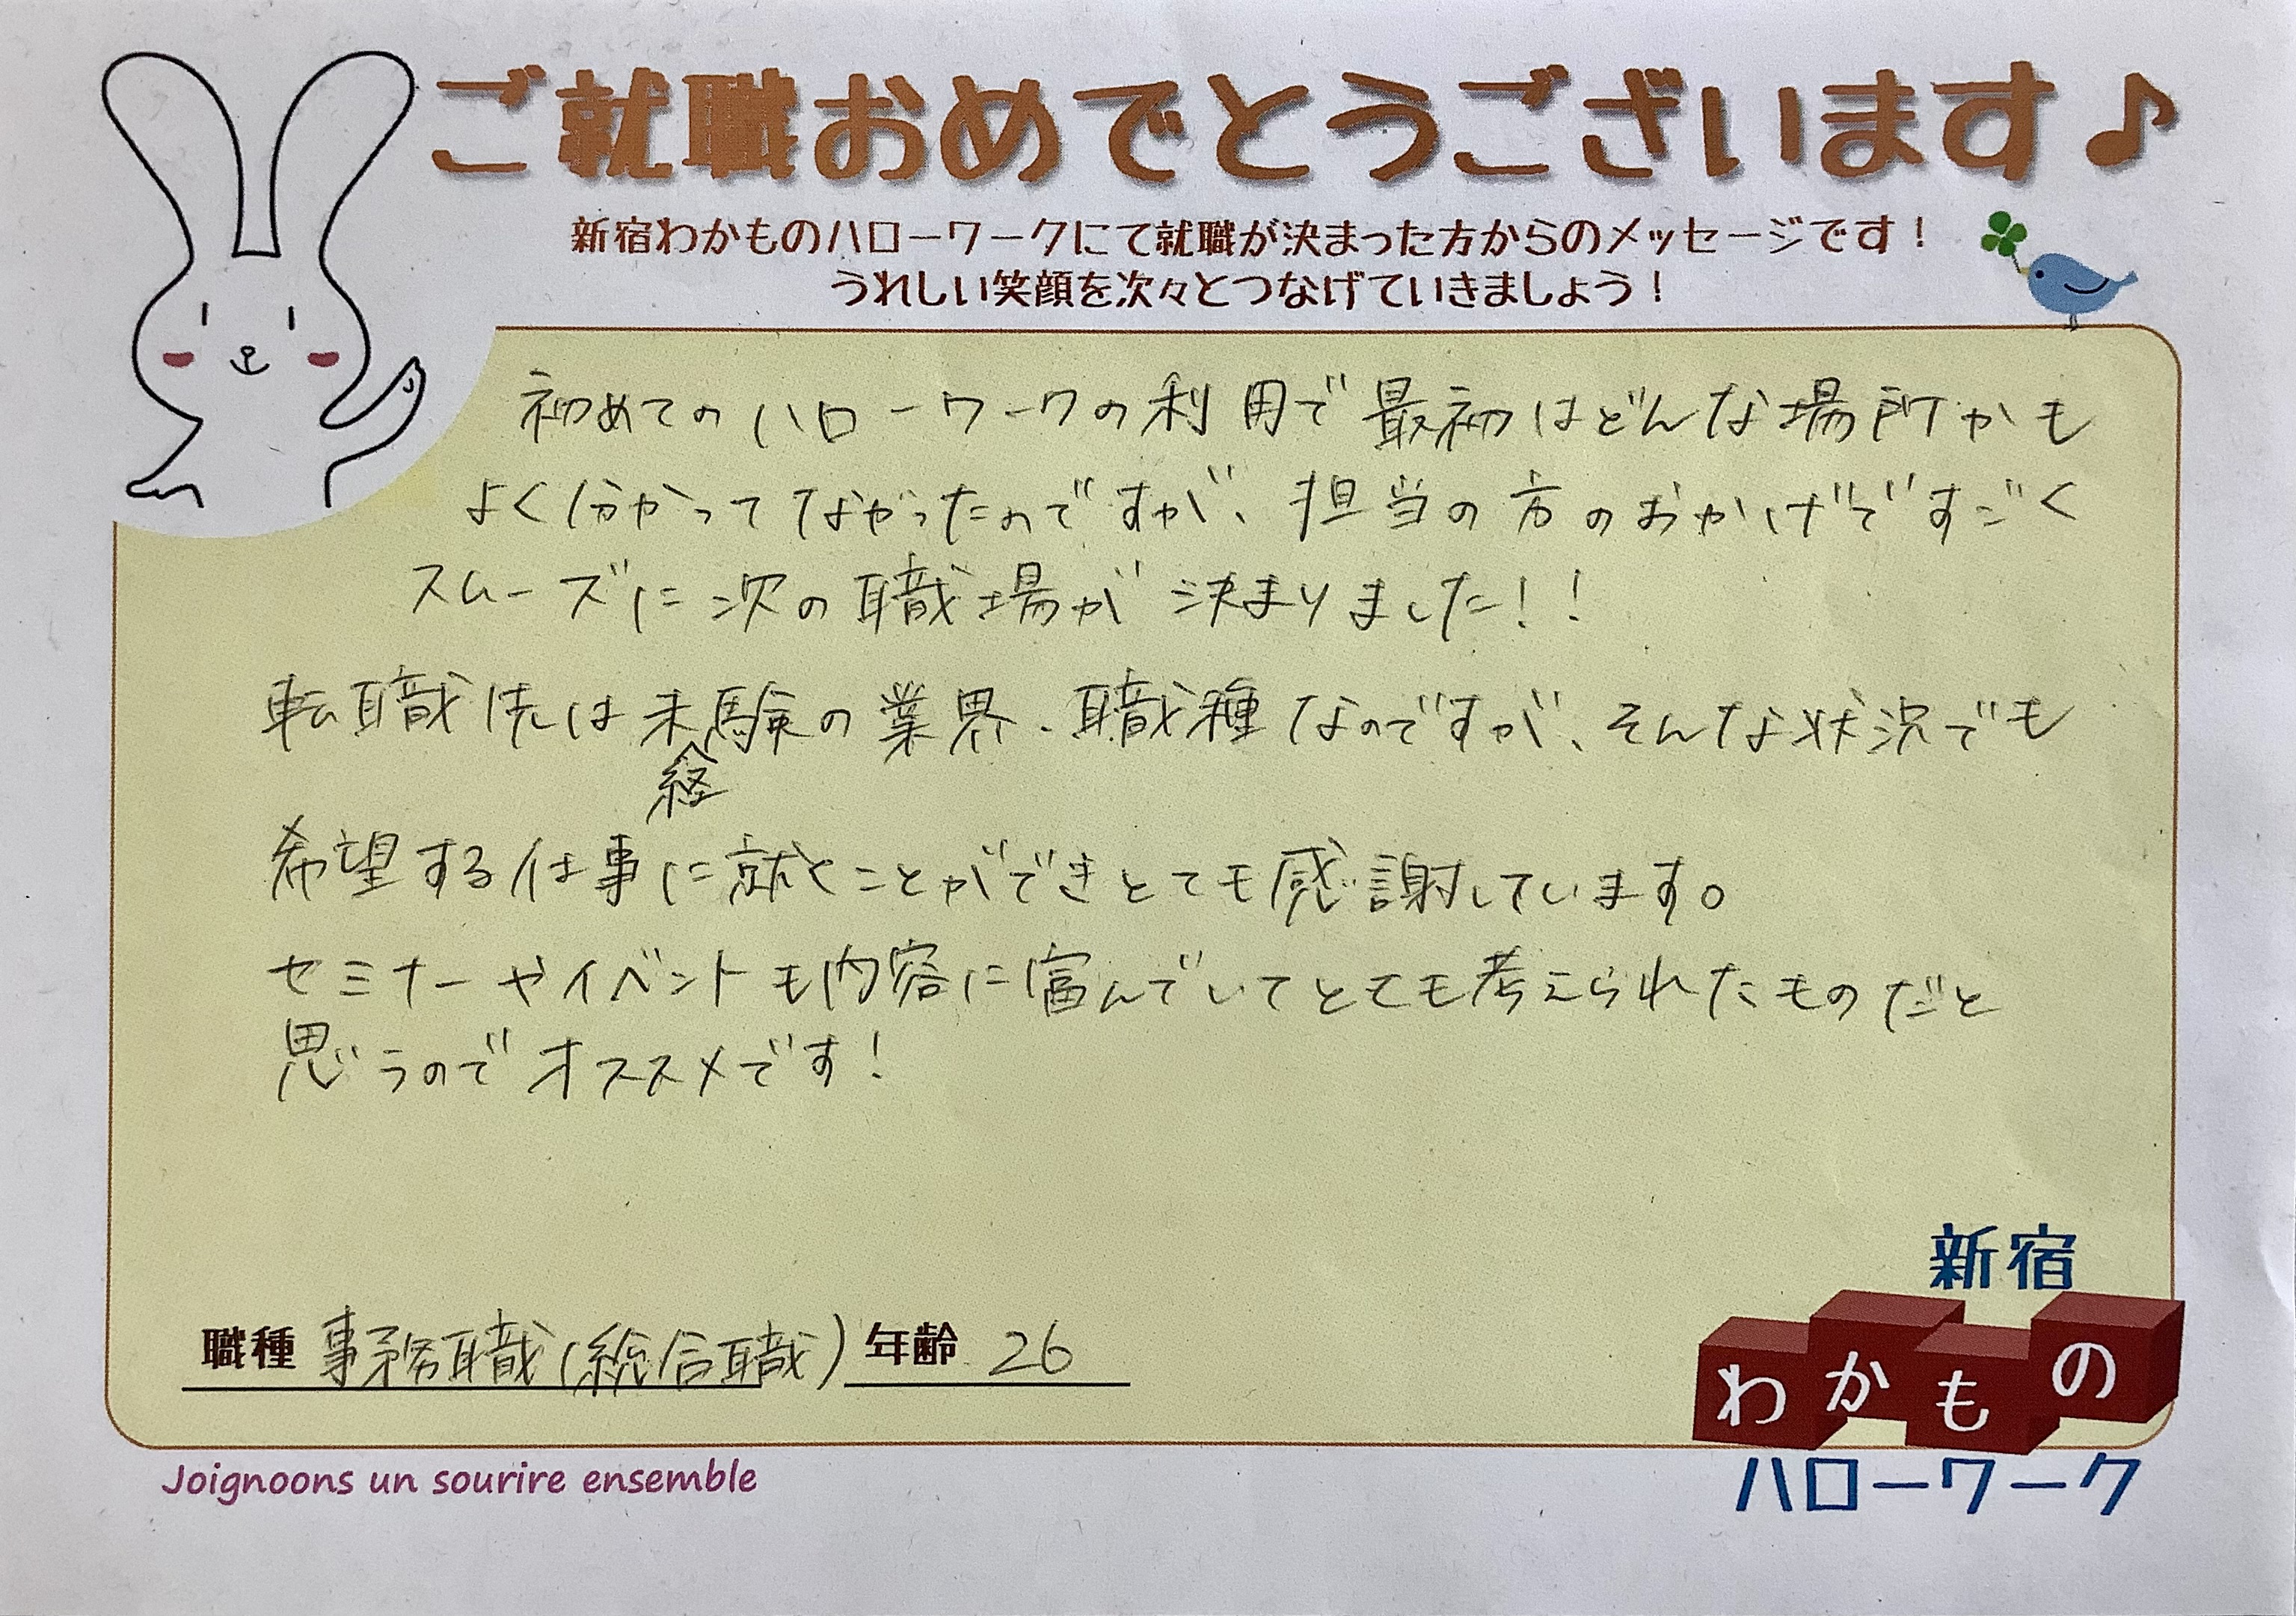 ご就職おめでとうございます♪
新宿わかものハローワークにて就職が決まった方からのメッセージです！
うれしい笑顔を次々とつなげていきましょう！
初めてのハローワークの利用で最初はどんな場所かも
よく分かってなかったのですが、担当の方のおかげですごく
スムーズに次の職場が決まりました！！
転職先は未経験の業界・職種なのですが、そんな状況でも
希望する仕事に就くことができとても感謝しています。
セミナーやイベントも内容に富んでいてとても考えられたものだと
思うのでオススメです！
職種 事務職(総合職) 年齢 26
新宿
わかもの
ハローワーク
Joignoons un sourire ensemble